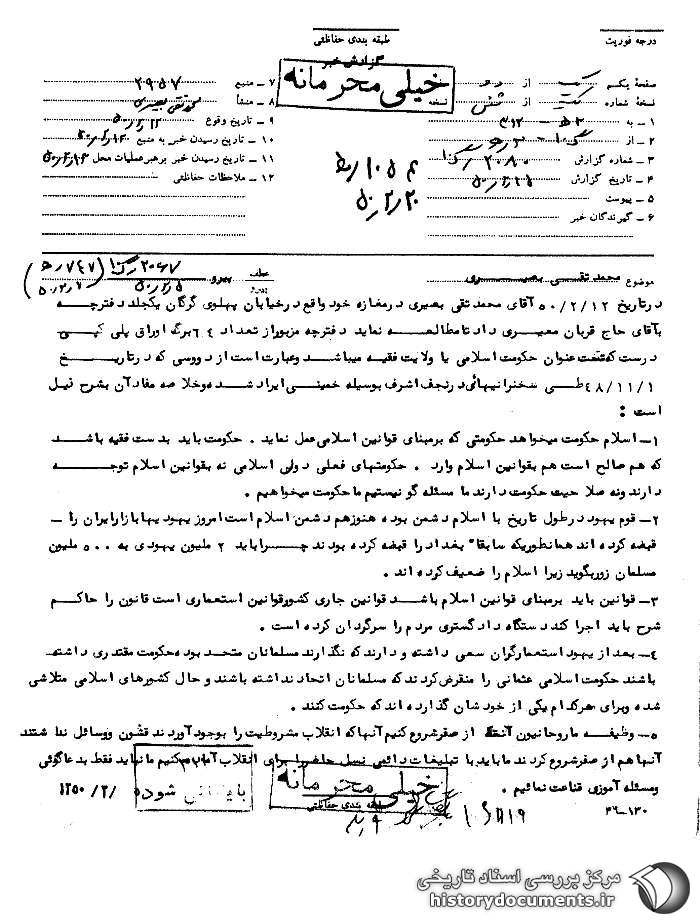 درجه فوریت
طبقه بندی حفاظتی
گزارش خبر
خیلی محرمانه
صفحهٔ یکم از
نسخهٔ شماره از شش نسخه
۱ ـ به ۳۱۲
۲ ـ از
۳ ـ شماره گزارش ۲۰۸۰
۴ ـ تاریخ گزارش
۵ ـ پیوست
۶ ـ گیرندگان خبر
۷ ـ منبع ۲۹۵۷
۸ ـ منشأ محمد تقی بصیری
۹ ـ تاریخ وقوع
۱۰ ـ تاریخ رسیدن خبر به منبع
۱۱ ـ تاریخ رسیدن خبر برهبر عملیات محل
۱۲ ـ ملاحظات حفاظتی
۵۰٫۲٫۲۰
موضوع محمد تقی بصیری
عطف پیرو
درتاریخ ۵۰/۲/۱۲ آقای محمد تقی بصیری درمغازه خود واقع درخیابان پهلوی گرگان یکجلد دفترچه
بآقای حاج قربان معمیری داد تا مطالعه نماید دفترچه مزبور از تعداد ۶۴ برگ اوراق پلی کپی
درست که تحت عنوان حکومت اسلامی یا ولایت فقیه میباشد وعبارت است از دروسی که درتاریخ
۴۸/۱۱/۱ طی سخنرانیهائی درنجف اشرف بوسیله خمینی ایراد شده وخلاصه مفاد آن بشرح ذیل
است :
۱ـ اسلام حکومت میخواهد حکومتی که برمبنای قوانین اسلامی عمل نماید . حکومت باید بدست فقیه باشد
که هم صالح است هم بقوانین اسلام وارد . حکومتهای فعلی دولی اسلامی نه بقوانین اسلام توجه
دارند ونه صلاحیت حکومت دارند ما مسئله گو نیستیم ما حکومت میخواهیم .
۲ـ قوم یهود درطول تاریخ با اسلام دشمن بوده هنوزهم دشمن اسلام است امروز یهودیها بازار ایران را ـ
قبضه کرده اند همانطوریکه سابقا" بغداد را قبضه کرده بودند چرا باید ۲ ملیون یهودی به ۵۰۰ ملیون
مسلمان زوربگوید زیرا اسلام را ضعیف کرده اند .
۳ـ قوانین باید برمبنای قوانین اسلام باشد قوانین جاری کشور قوانین استعماری است قانون را حاکم
شرع باید اجرا کند دستگاه دادگستری مردم را سرگردان کرده است .
۴ـ بعد از یهود استعمارگران سعی داشته و دارند که نگذارند مسلمانان متحد بوده حکومت مقتدری داشته
باشند حکومت اسلامی عثمانی را منقرض کردند که مسلمانان اتحاد نداشته باشند و حال کشورهای اسلامی متلاشی
شده وبرای هرکدام یکی از خودشان گذارده اند که حکومت کنند .
۵ـ وظیفه ما روحانیون آنستکه از صفر شروع کنیم آنها که انقلاب مشروطیت را بوجود آوردند قشون ووسائل نداشتند
آنها هم از صفر شروع کردند ما باید با تبلیغات دائمی نسل حاضر را برای انقلاب آماده کنیم ما نباید فقط بدعاگوئی
ومسئله آموزی قناعت نمائیم .
خیلی محرمانه
طبقه بندی حفاظتی
بایگانی شود
۱۳۵۰/۲/
۳۶-۱۳۰
مرکز بررسی اسناد تاریخی
historydocuments.ir